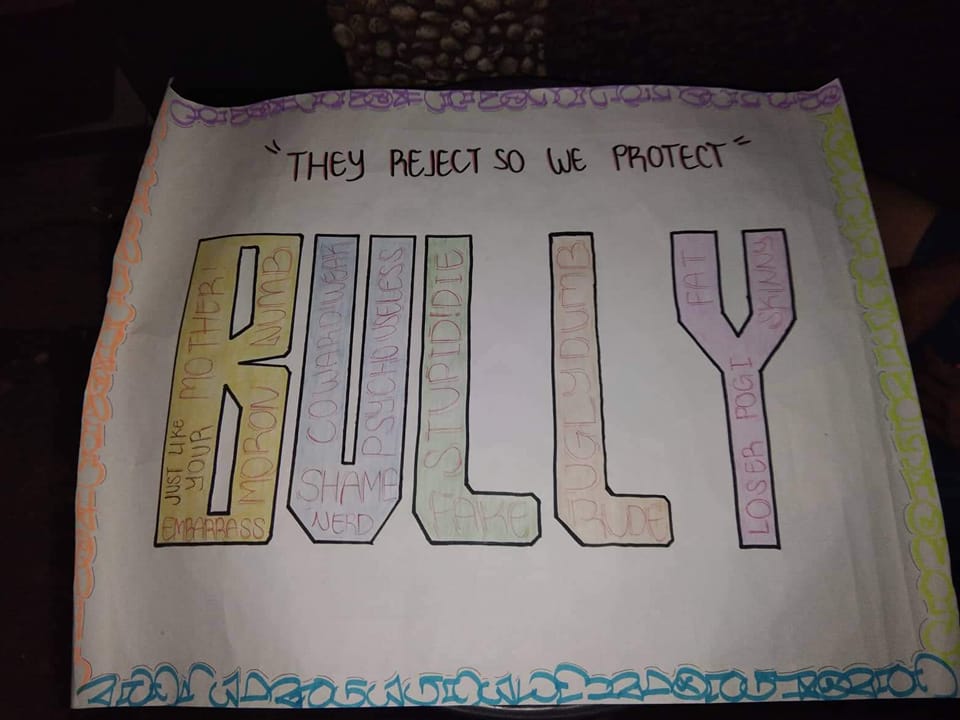 "THEY REJECT SO WE PROTECT"
BULLY
JUST LIKE
YOUR MOTHER!
MORON NUMB
EMBARRASS
COWARD WEAK
PSYCHO USELESS
SHAME
NERD
STUPID!DIE
FAKE
UGLY DUMB
RUDE
FAT
SKINNY
LOSER POGI